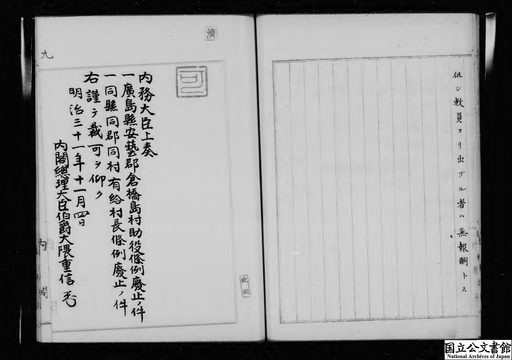 但シ教員ヨリ出ヅル者ハ無報酬トス
内務大臣上奏
一廣島縣安藝郡倉橋島村助役條例廢止ノ件
一同縣同郡同村有給村長條例廢止ノ件
右謹テ裁可ヲ仰ク
明治三十一年十一月四日
内閣總理大臣伯爵大隈重信
可
濟
九
内閣
国立公文書館
National Archives of Japan